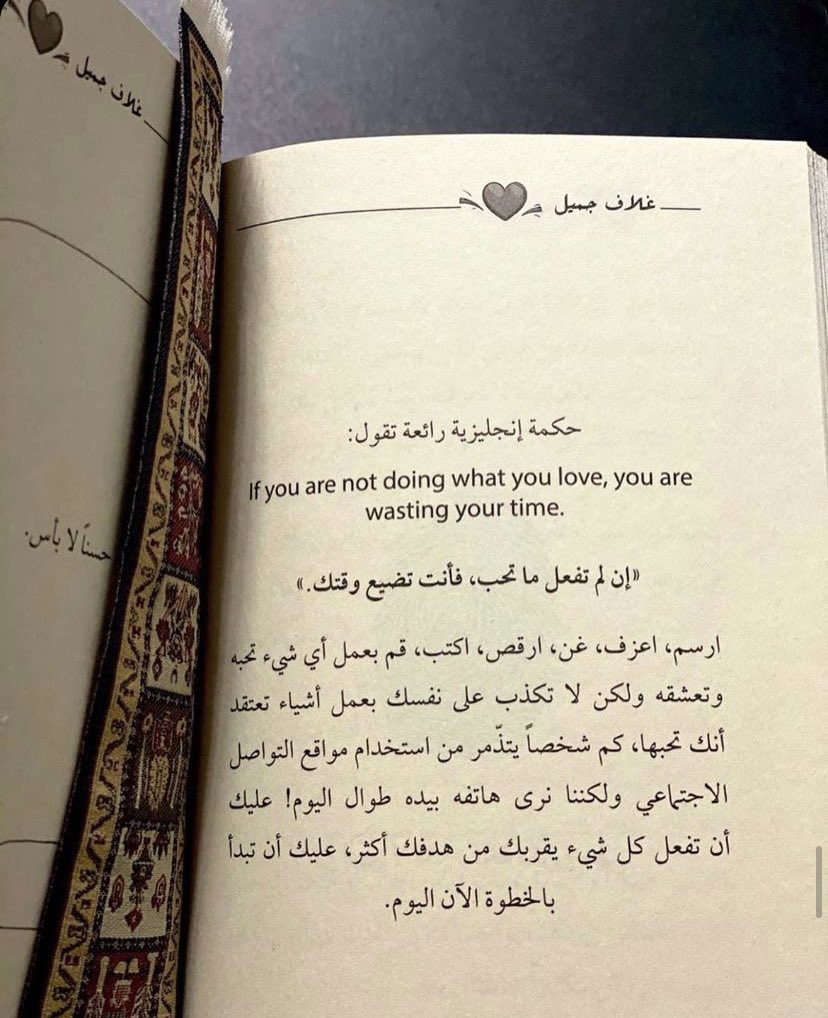 غلاف جميل
حسناً لا بأس.
غلاف جميل
حكمة إنجليزية رائعة تقول:
If you are not doing what you love, you are
wasting your time.
«إن لم تفعل ما تحب، فأنت تضيع وقتك.»
ارسم، اعزف، غن، ارقص، اكتب، قم بعمل أي شيء تحبه
وتعشقه ولكن لا تكذب على نفسك بعمل أشياء تعتقد
أنك تحبها، كم شخصاً يتذّمر من استخدام مواقع التواصل
الاجتماعي ولكننا نرى هاتفه بيده طوال اليوم! عليك
أن تفعل كل شيء يقربك من هدفك أكثر، عليك أن تبدأ
بالخطوة الآن اليوم.